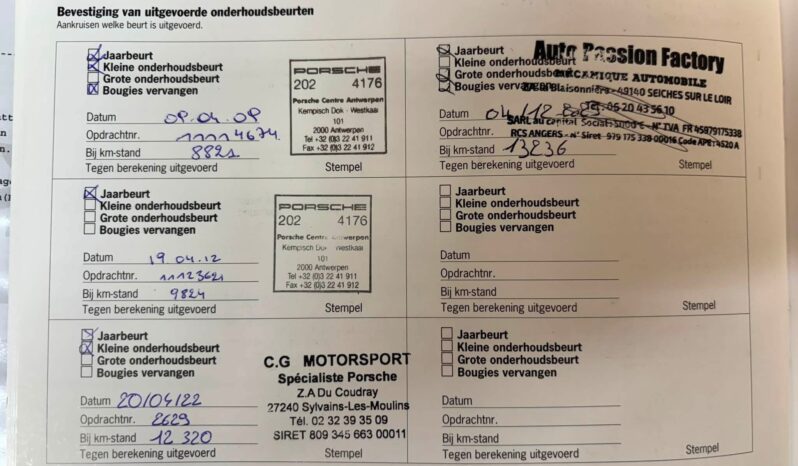 Bevestiging van uitgevoerde onderhoudsbeurten
Aankruisen welke beurt is uitgevoerd.
Jaarbeurt
Kleine onderhoudsbeurt
Grote onderhoudsbeurt
Bougies vervangen
Datum 08.04.08
Opdrachtnr. 11114674
Bij km-stand 8821
Tegen berekening uitgevoerd
PORSCHE
202 4176
Porsche Centre Antwerpen
Kempisch Dok - Westkaai
101
2000 Antwerpen
Tel +32 (0)3 22 41 911
Fax +32 (0)3 22 41 912
Stempel
Jaarbeurt
Kleine onderhoudsbeurt
Grote onderhoudsbeurt
Bougies vervangen
Datum 19 04.12
Opdrachtnr. 11123621
Bij km-stand 9824
Tegen berekening uitgevoerd
PORSCHE
202 4176
Porsche Centre Antwerpen
Kempisch Dok Westkaai
101
2000 Antwerpen
Tel +32 (0)3 22 41 911
Fax +32 (0)3 22 41 912
Stempel
Jaarbeurt
Kleine onderhoudsbeurt
Grote onderhoudsbeurt
Bougies vervangen
Datum 20/04/22
Opdrachtnr. 2629
Bij km-stand 12 320
Tegen berekening uitgevoerd
C.G MOTORSPORT
Spécialiste Porsche
Z.A Du Coudray
27240 Sylvains-Les-Moulins
Tél. 02 32 39 35 09
SIRET 809 345 663 00011
Stempel
Jaarbeurt
Kleine onderhoudsbeurt
Grote onderhoudsbeurt
Bougies vervangen
Datum 04/12
Opdrachtnr.
Bij km-stand 13236
Tegen berekening uitgevoerd
Auto Passion Factory
MÉCANIQUE AUTOMOBILE
Blaisonnière - 49140 SEICHES SUR LE LOIR
06 20 43 56 10
SARL au capital Social N° TVA FR 45979175338
RCS ANGERS - n° Siret 979 175 338 00016 Code APE : 4520A
Stempel
Jaarbeurt
Kleine onderhoudsbeurt
Grote onderhoudsbeurt
Bougies vervangen
Datum
Opdrachtnr.
Bij km-stand
Tegen berekening uitgevoerd
Stempel
Jaarbeurt
Kleine onderhoudsbeurt
Grote onderhoudsbeurt
Bougies vervangen
Datum
Opdrachtnr.
Bij km-stand
Tegen berekening uitgevoerd
Stempel